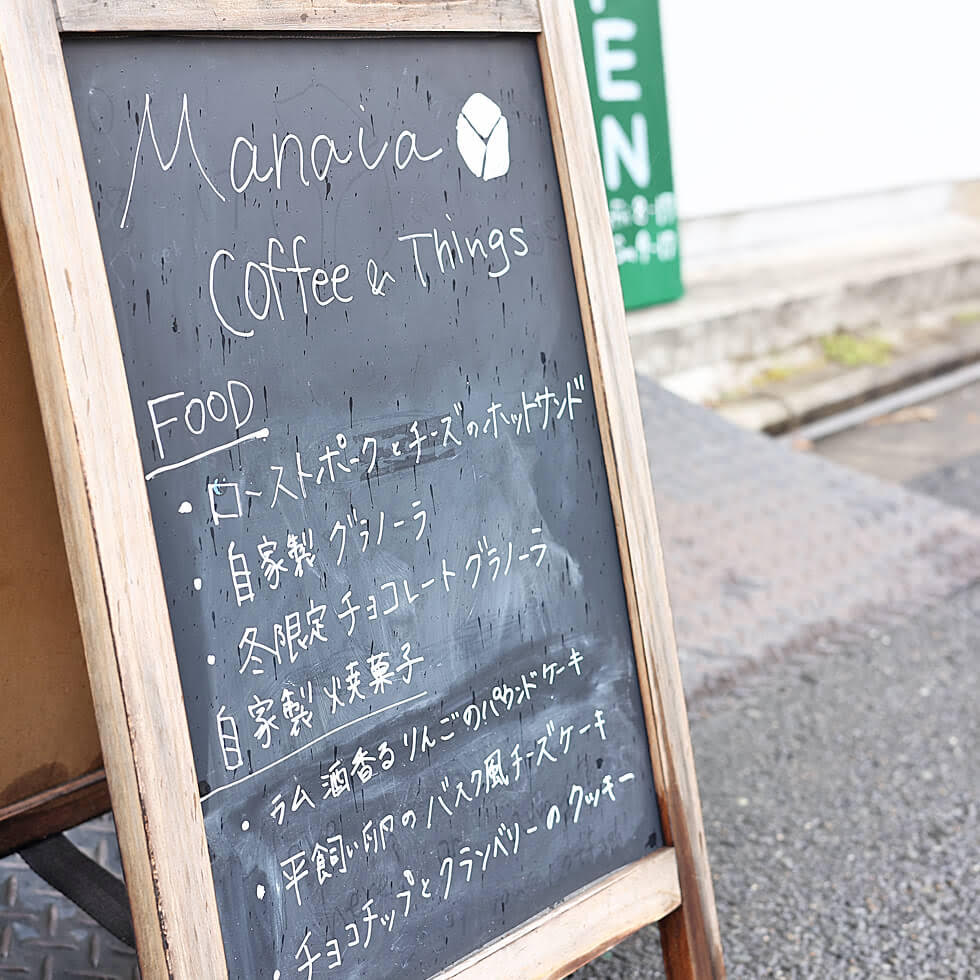 Manaia
Coffee & Things
FOOD
・ローストポークとチーズのホットサンド
・自家製 グラノーラ
・冬限定 チョコレートグラノーラ
自家製 焼菓子
・ラム酒香る りんごのパウンドケーキ
・平飼い卵の バスク風チーズケーキ
・チョコチップとクランベリーのクッキー
EN